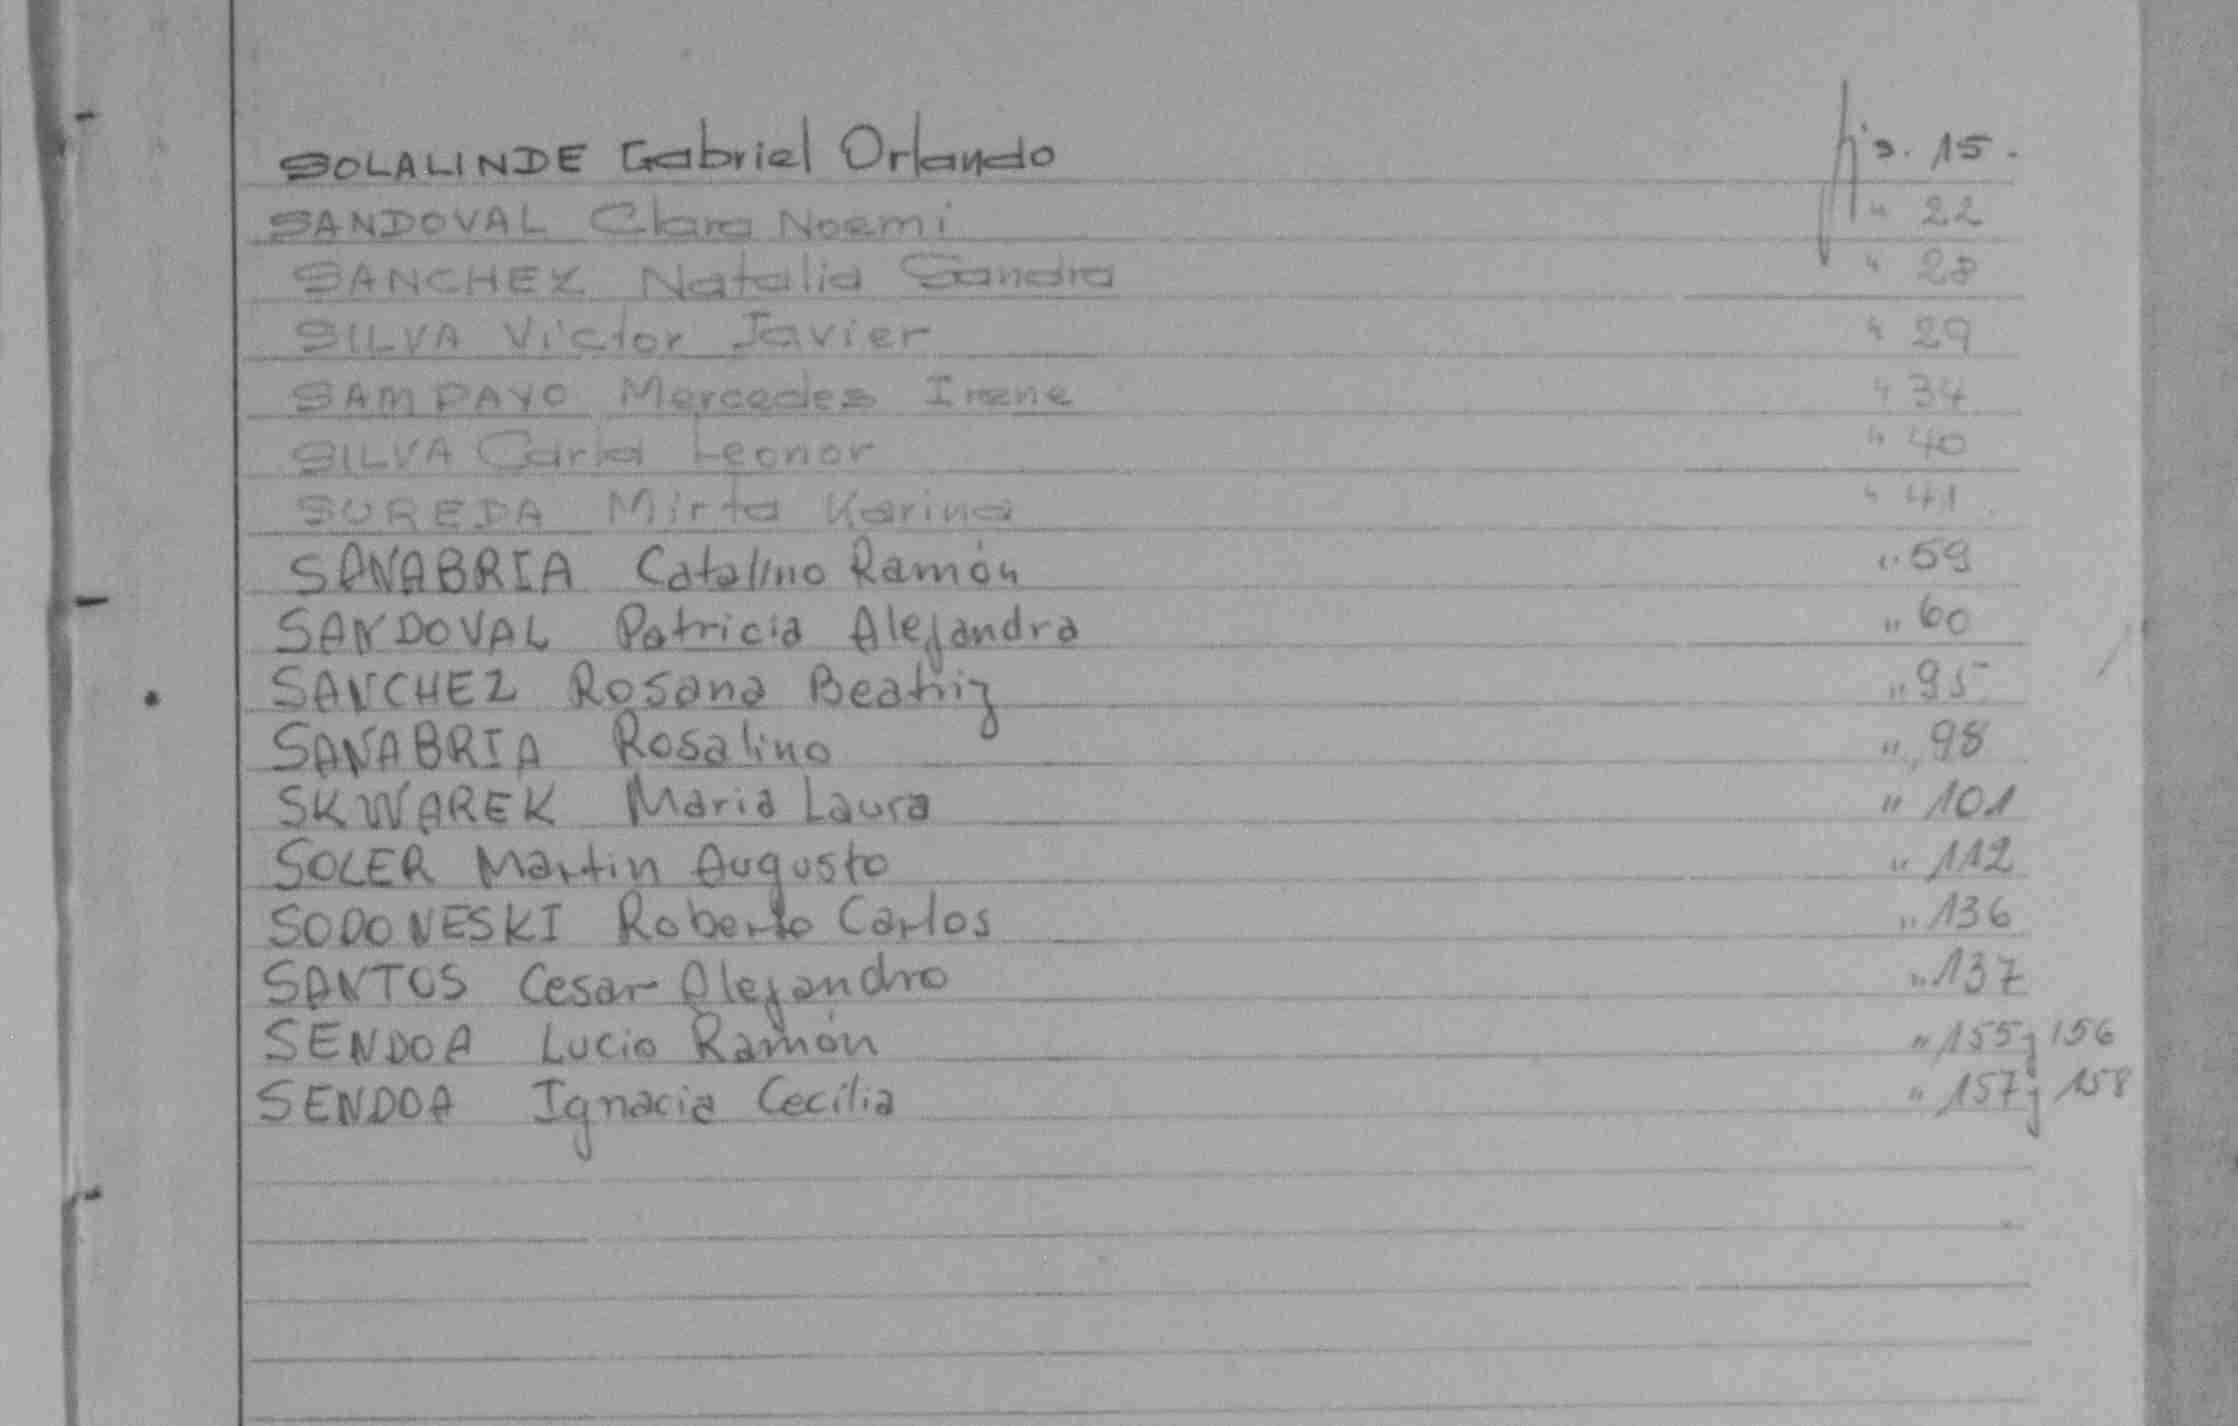 SOLALINDE Gabriel Orlando fjs. 15.
SANDOVAL Clara Noemi " 22
SANCHEZ Natalia Sandra " 28
SILVA Victor Javier " 29
SAMPAYO Mercedes Irene " 34
SILVA Carla Leonor " 40
SUREDA Mirta Karina " 41
SANABRIA Catalino Ramón " 59
SANDOVAL Patricia Alejandra " 60
SANCHEZ Rosana Beatriz " 95
SANABRIA Rosalino " 98
SKWAREK Maria Laura " 101
SOLER Martin Augusto " 112
SODONESKI Roberto Carlos " 136
SANTOS Cesar Alejandro " 137
SENDOA Lucio Ramón " 155 y 156
SENDOA Ignacia Cecilia " 157 y 158